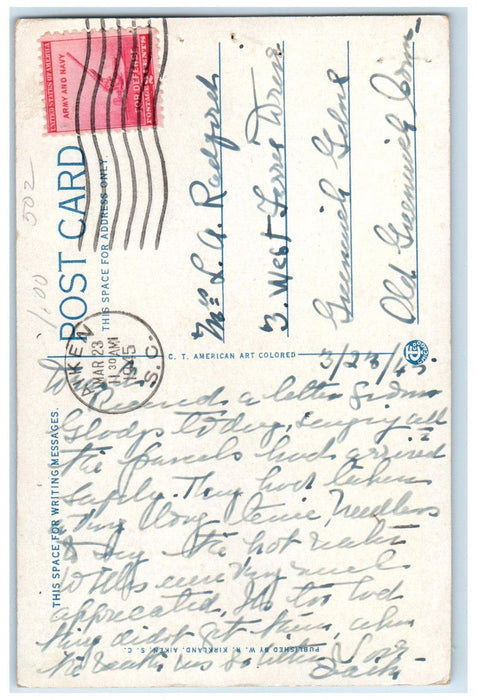 UNITED STATES OF AMERICA
ARMY AND NAVY
FOR DEFENSE
POSTAGE 2 CENTS
AIKEN
MAR 23
11 30 AM
1945
S.C.
1.00 502
POST CARD
THIS SPACE FOR ADDRESS ONLY.
Mrs L. A. Radford
3. West Drive
Greenwich
Old Greenwich Conn
C. T. AMERICAN ART COLORED
THIS SPACE FOR WRITING MESSAGES.
3/23/45
Received a letter from
Gladys today, saying all
the parcels had arrived
safely. They had taken
a very long time, Needless
to say the hot water
bottles were very much
appreciated, It's too bad
they didn't get them, when
the weather was so bitter Love
PUBLISHED BY W. R. KIRKLAND, AIKEN, S. C.